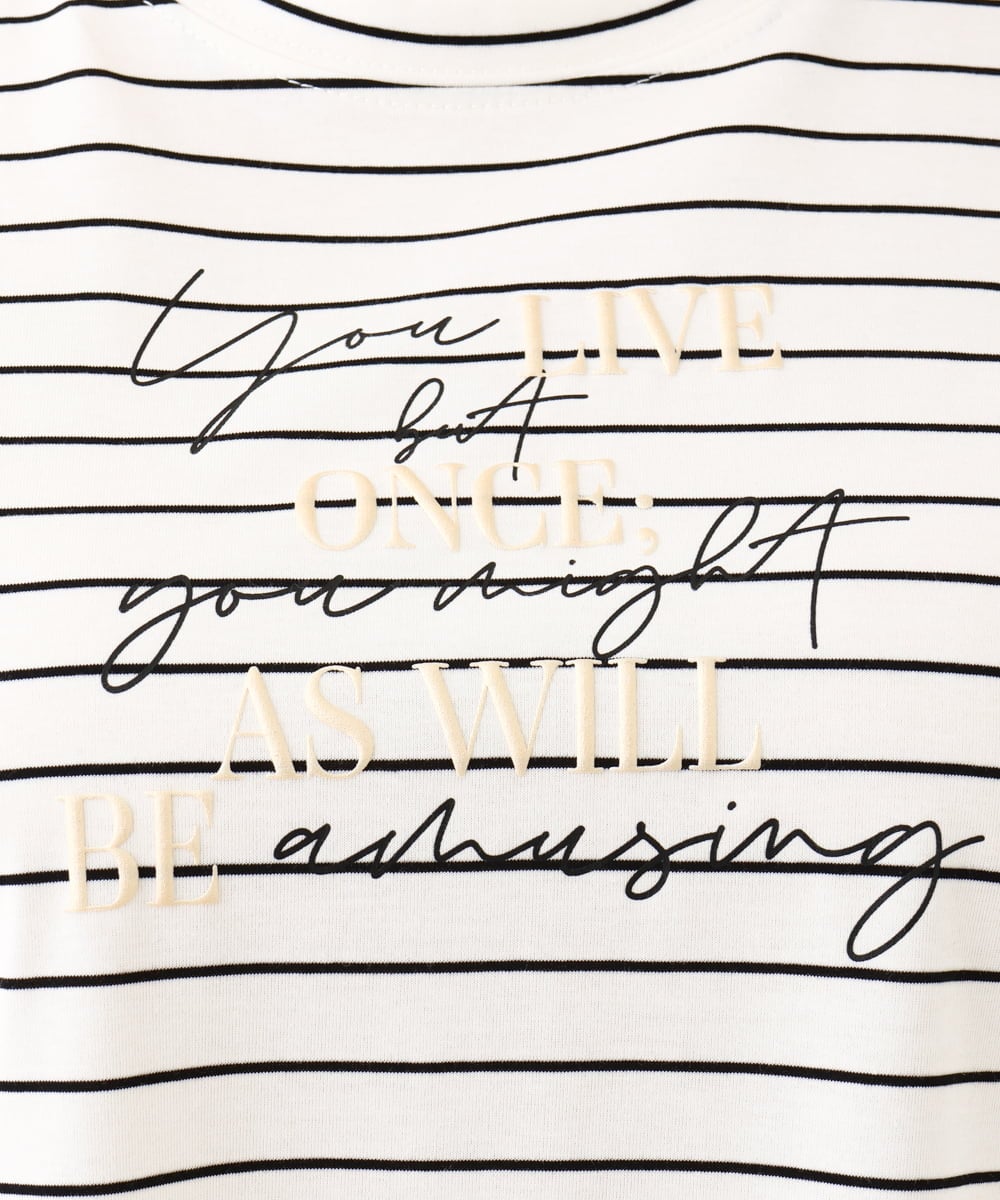 You LIVE
but
ONCE;
you might
AS WILL
BE amusing